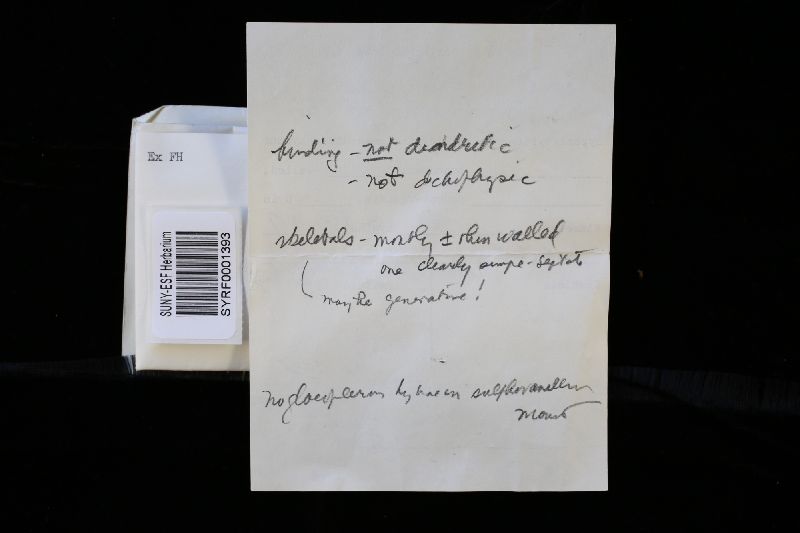 Ex FH
SUNY-ESF Herbarium
SYRF0001393
binding - not dendritic
- not dichophysic
skeletals - mostly ± thin walled
one clearly simple-septate
maybe generative!
no gloeoplerous hyphae in sulphovanillin
mount